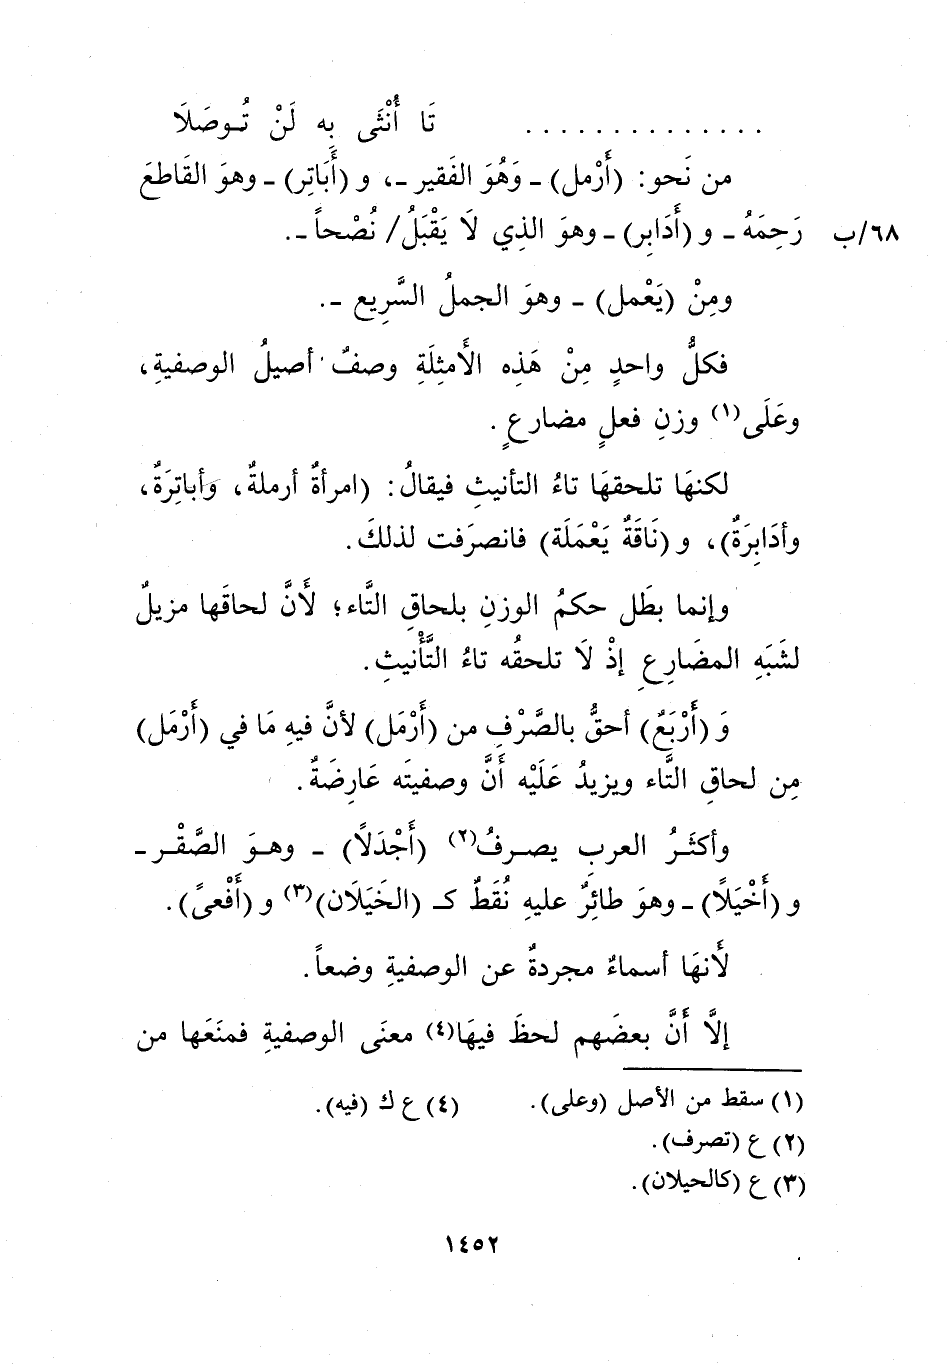 . . . . . . . . . . . . . . تَا أُنْثَى بِه لَنْ تُـوصَلَا
من نَحو: (أَرْمل) ـ وَهُوَ الفَقير ـ، و (أَبَاتِر) ـ وهوَ القَاطعَ
٦٨/ب رَحِمَهُ ـ و (أَدَابِر) ـ وهوَ الذِي لَا يَقْبَلُ/ نُصْحاً ـ.
ومِنْ (يَعْمل) ـ وهوَ الجملُ السَّرِيع ـ.
فكلُّ واحدٍ مِنْ هَذِه الأَمثِلَةِ وصفٌ أصيلُ الوصفيةِ،
وعَلَى(١) وزنِ فعلٍ مضارعٍ.
لكنهَا تلحقهَا تاءُ التأنيثِ فيقالُ: (امرأةٌ أرملةٌ، وَأباتِرَةٌ،
وأدَابِرَةٌ)، و (نَاقَةٌ يَعْمَلَة) فانصرَفت لذلكَ.
وإنما بطَل حكمُ الوزنِ بلحاقِ التَّاء؛ لأَنَّ لحاقَها مزيلٌ
لشَبَهِ المضَارِعِ إذْ لَا تلحقُه تاءُ التَّأْنيثِ.
وَ (أَرْبَعٌ) أحقُّ بالصَّرْفِ من (أَرْمَل) لأنَّ فيهِ مَا في (أَرْمَل)
مِن لحاقِ التَّاء ويزيدُ عَلَيْه أَنَّ وصفيتَه عَارِضَةٌ.
وأكثَـرُ العربِ يصـرفُ(٢) (أَجْدَلاً) ـ وهـوَ الصَّقْـر ـ
و (أَخْيَلاً) ـ وهوَ طائِرٌ عليهِ نُقَطٌ كـ (الخَيَلَان)(٣) و (أَفْعىً).
لأَنهَا أسماءٌ مجردةٌ عن الوصفيةِ وضعاً.
إلَّا أَنَّ بعضَهم لحظَ فيهَا(٤) معنَى الوصفيةِ فمنَعَها من
(١) سقط من الأصل (وعلى). (٤) ع ك (فيه).
(٢) ع (تصرف).
(٣) ع (كالحيلان).
١٤٥٢